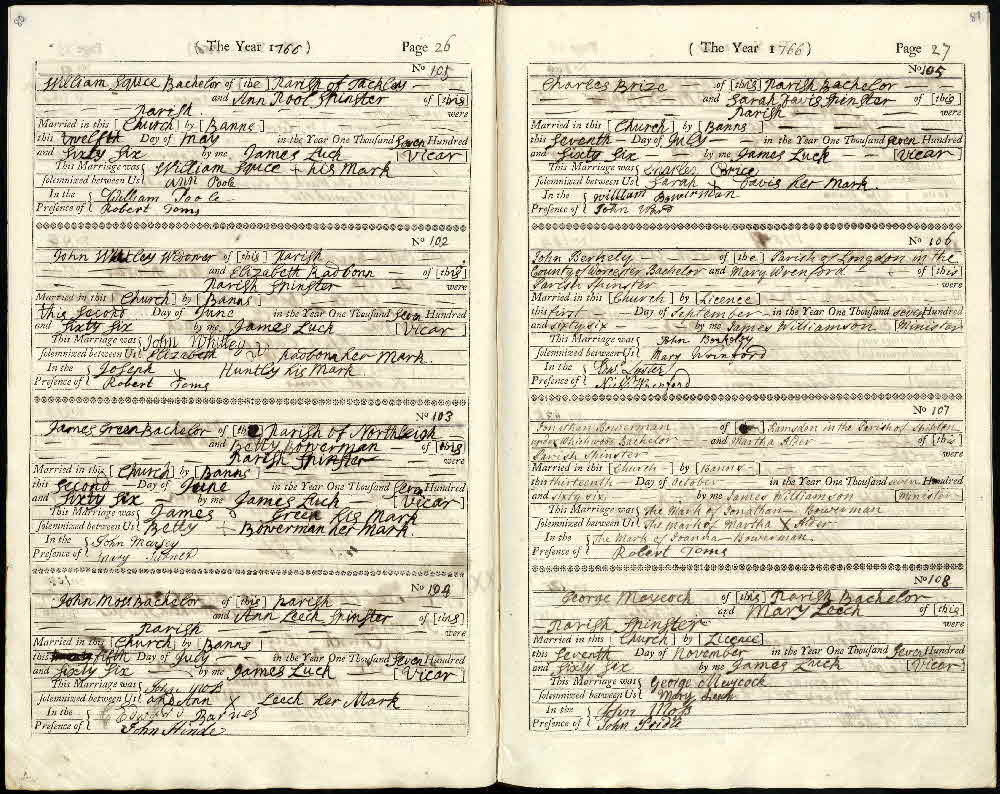 80
( The Year 1766 )
Page 26
No 105
William Spuce Bachelor of [the] Parish of Tackley
and Ann Pool Spinster of [this]
Parish were
Married in this [Church] by [Banns]
this twelfth Day of May in the Year One Thousand Seven Hundred
and Sixty Six by me James Luck [Vicar]
This Marriage was William Spuce + his Mark
solemnized between Us Ann Poole
In the William Poole
Presence of Robert Toms
No 102
John Whitley Widower of [this] Parish
and Elizabeth Radbonn of [this]
Parish Spinster were
Married in this [Church] by [Banns]
this second Day of June in the Year One Thousand Seven Hundred
and Sixty Six by me James Luck [Vicar]
This Marriage was John Whitley
solemnized between Us Elizabeth Radbona her Mark.
In the Joseph Huntley his Mark
Presence of Robert Toms
No 103
James Green Bachelor of [the] Parish of Northleigh
and Betty Bowerman of [this]
Parish Spinster were
Married in this [Church] by [Banns]
this Second Day of June in the Year One Thousand Seven Hundred
and Sixty Six by me James Luck [Vicar]
This Marriage was James Green his Mark
solemnized between Us Betty + Bowerman her Mark.
In the John
Presence of Mary
No 104
John Moss Bachelor of [this] Parish
and Ann Leech Spinster of [this]
Parish were
Married in this [Church] by [Banns]
this fifth Day of July in the Year One Thousand Seven Hundred
and Sixty Six by me James Luck [Vicar]
This Marriage was John Moss
solemnized between Us and Ann X Leech her Mark
In the Edward Barnes
Presence of John Hinde
81
( The Year 1766 )
Page 27
No 105
Charles Brize of [this] Parish Bachelor
and Sarah Davis Spinster of [this]
Parish were
Married in this [Church] by [Banns]
this Seventh Day of July in the Year One Thousand Seven Hundred
and Sixty Six by me James Luck [Vicar]
This Marriage was Charles Brice
solemnized between Us Sarah + Davis her Mark.
In the William Bowerman
Presence of John Ward
No 106
John Berkely of [the] Parish of Longdon in the
County of Worcester Bachelor and Mary Wrenford of [this]
Parish Spinster were
Married in this [Church] by [Licence]
this first Day of September in the Year One Thousand seven Hundred
and sixty six by me James Williamson [Minister]
This Marriage was John Berkeley
solemnized between Us Mary Wrinford
In the Lyster
Presence of Wrenford
No 107
Jonathan Bowerman of Ramsden in the Parish of Shipton
under Whichwood Bachelor and Martha Alder of [this]
Parish Spinster were
Married in this [Church] by [Banns]
this thirteenth Day of October in the Year One Thousand seven Hundred
and sixty six by me James Williamson [Minister]
This Marriage was The Mark of Jonathan Bowerman
solemnized between Us The Mark of Martha X Alder
In the The Mark of Joanna Bowerman
Presence of Robert Toms
No 108
George Maycock of [this] Parish Bachelor
and Mary Leech of [this]
Parish Spinster were
Married in this [Church] by [Licence]
this Seventh Day of November in the Year One Thousand Seven Hundred
and Sixty Six by me James Luck [Vicar]
This Marriage was George Meycock
solemnized between Us Mary Leech
In the John Moss
Presence of John Pridie